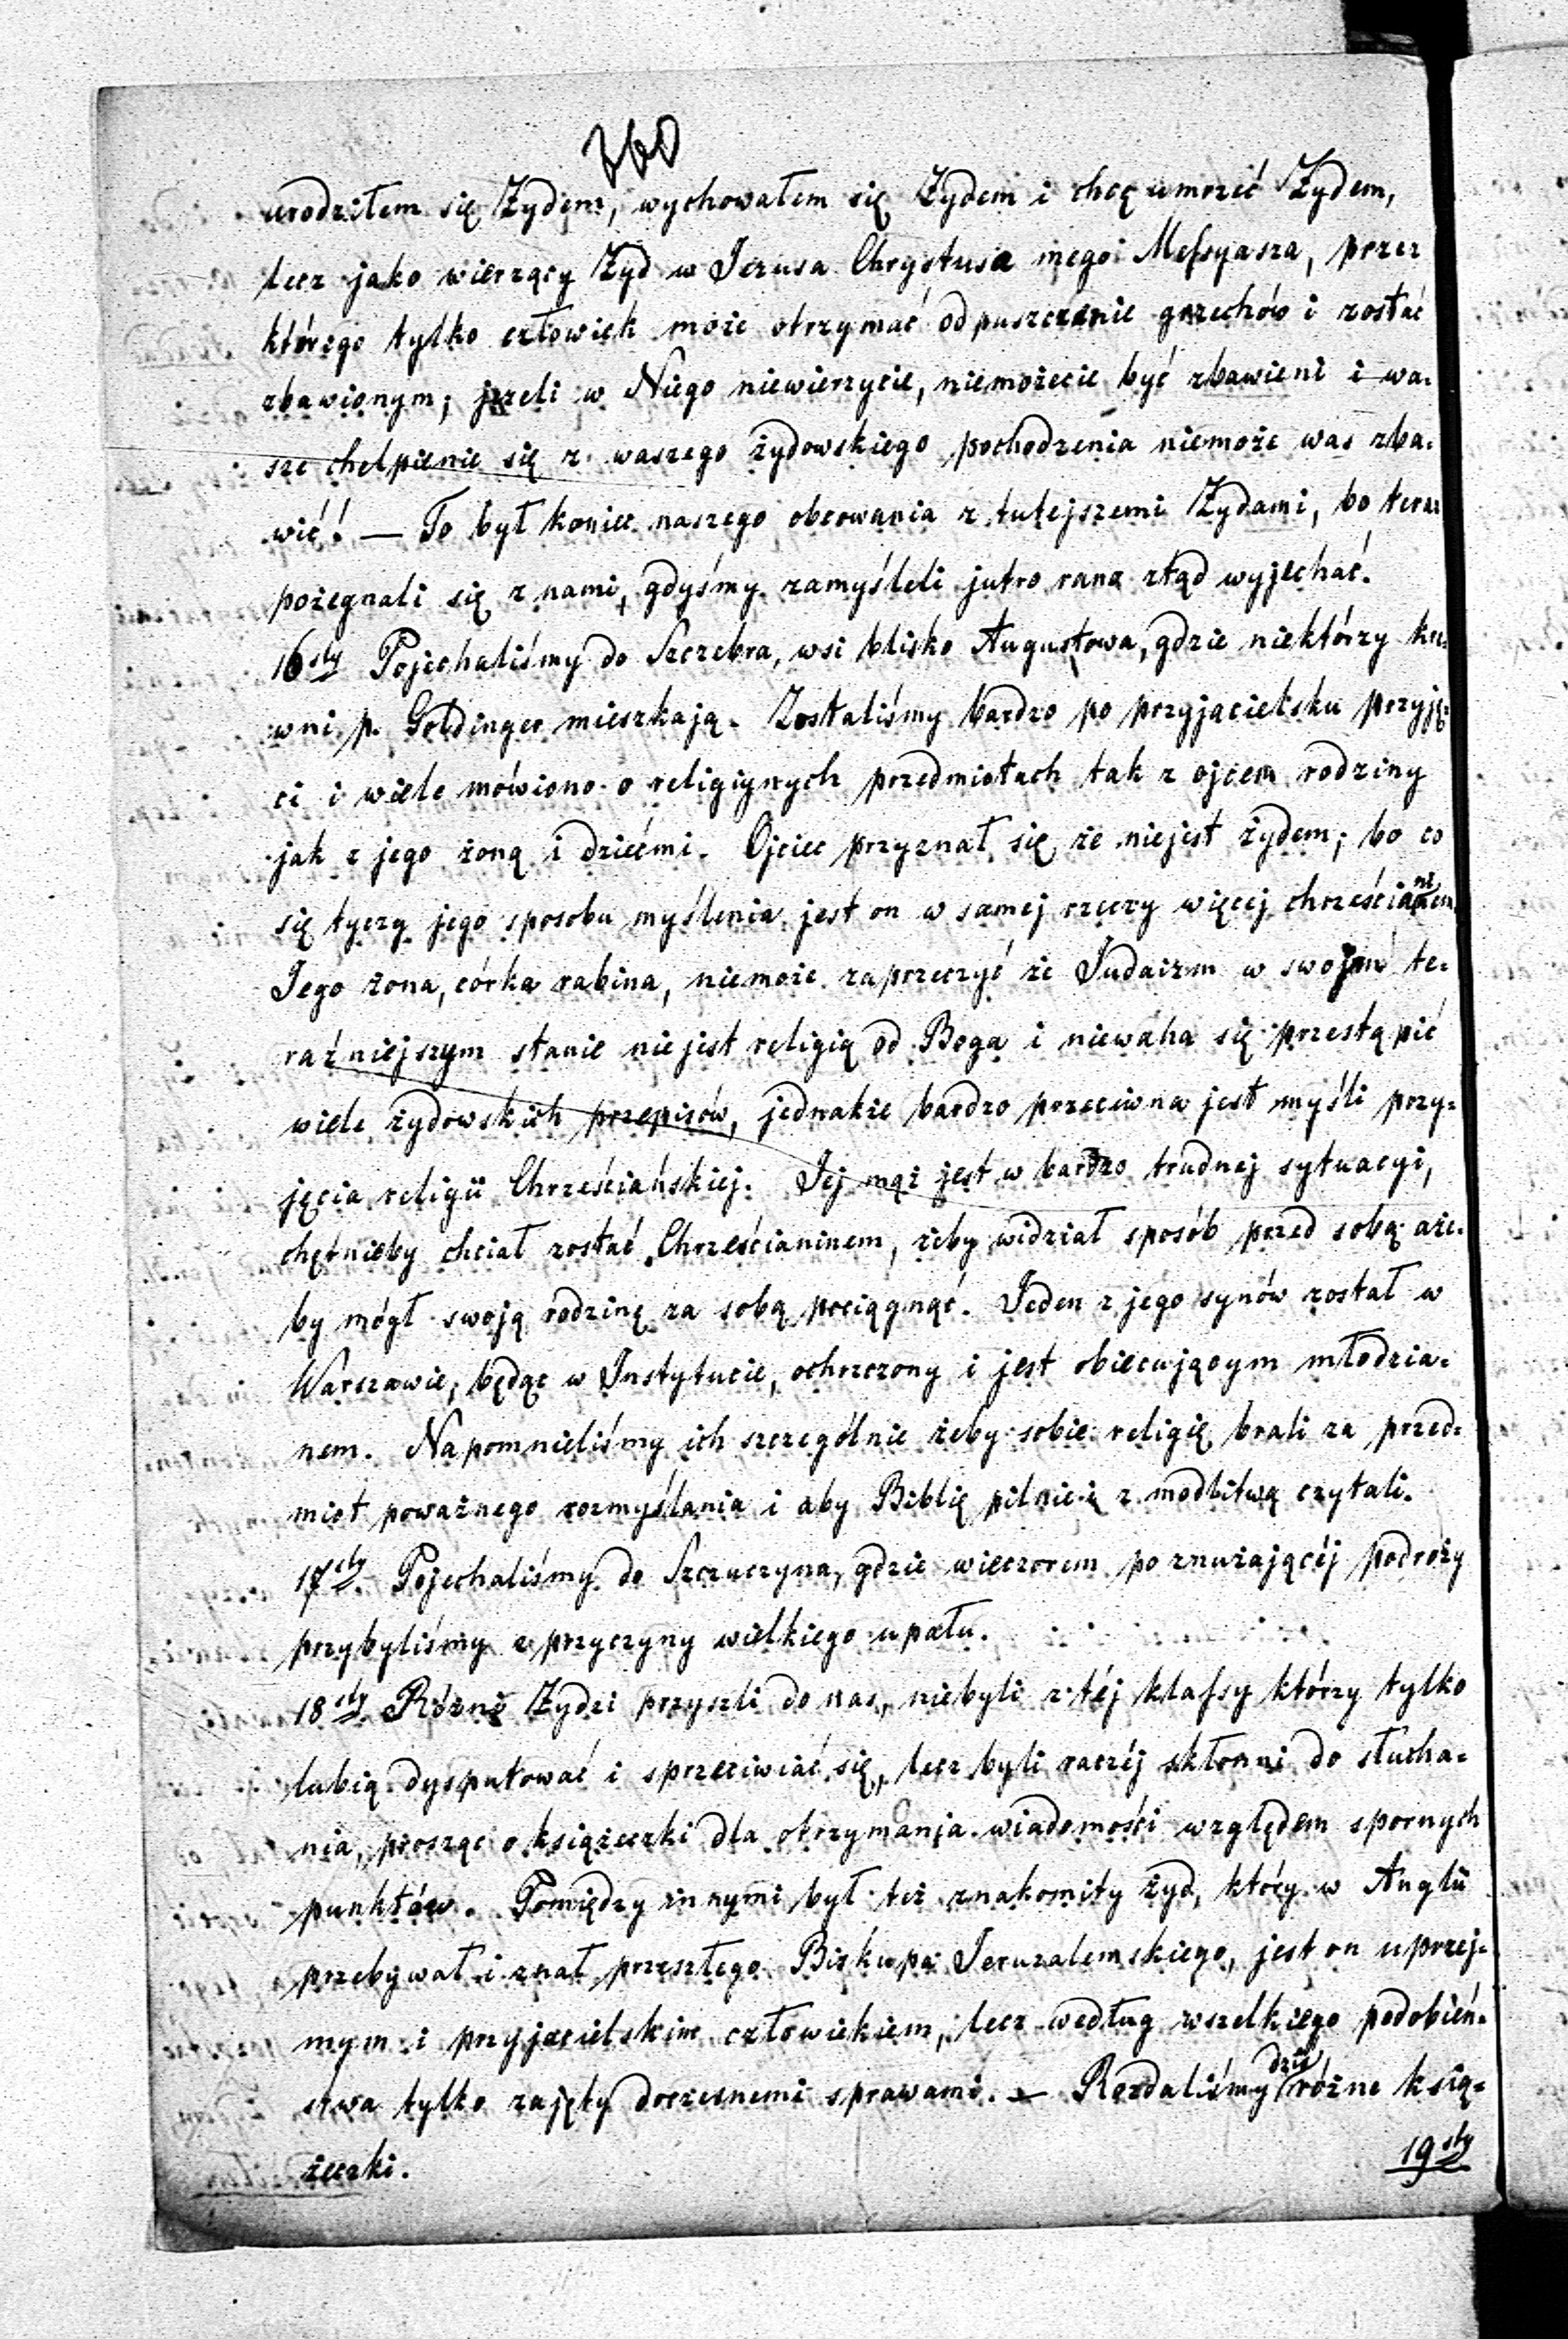 360
urodziłem się Żydem, wychowałem się Żydem i chcę umrzeć Żydem,
lecz jako wierzący Żyd w Jezusa Chrystusa mego Mefsyasza, przez
którego tylko człowiek może otrzymać odpuszczenie grzechów i zostać
zbawionym; jezeli w Niego niewierzycie, niemożecie być zbawieni i wa-
sze chełpienie się z waszego żydowskiego pochodzenia niemoże was zba-
wić! — To był koniec naszego obcowania z tutejszemi Żydami, bo teraz
pożegnali się z nami, gdyśmy zamyśleli jutro rana ztąd wyjechać.
16sty Pojechaliśmy do Szczebra, wsi blisko Augustowa, gdzie niektórzy kre-
wni p. Goldinger mieszkają. Zostaliśmy bardzo po przyjacielsku przyję-
ci i wiele mówiono o religijnych przedmiotach tak z ojcem rodziny
jak z jego żoną i dziećmi. Ojciec przyznał się że niejest żydem; bo co
się tyczy jego sposobu myślenia jest on w samej rzeczy więcej chrześcianinem
Jego żona, córka rabina, niemoże zaprzeczyć że Judaizm w swojem te-
raźniejszym stanie nie jest religią od Boga i niewaha się przestąpić
wiele żydowskich przepisów, jednakże bardzo przeciwna jest myśli przy-
jęcia religii Chrześciańskiej. Jej mąż jest w bardzo trudnej sytuacyi,
chętnieby chciał zostać Chrześcianinem, żeby widział sposób przed sobą aże-
by mógł swoją rodzinę za sobą pociągnąć. Jeden z jego synów został w
Warszawie, będąc w Instytucie, ochrzczony i jest obiecującym młodzia-
nem. Napomnieliśmy ich szczególnie żeby sobie religię brali za przed-
miot poważnego rozmyślania i aby Biblię pilnie i z modlitwą czytali.
17sty Pojechaliśmy do Szczuczyna, gdzie wieczorem po znużającéj podróży
przybyliśmy z przyczyny wielkiego upału.
18sty Różni Żydzi przyszli do nas, niebyli z téj klafsy którzy tylko
lubią dysputować i sprzeciwiać się, lecz byli raczéj skłonni do słucha-
nia, prosząc o książeczki dla otrzymania wiadomości względem spornych
punktów. Pomiędzy innymi był też znakomity żyd, który w Anglii
przebywał i znał przeszłego Biskupa Jeruzalemskiego, jest on uprzej-
mym i przyjacielskim człowiekiem, lecz według wszelkiego podobień-
stwa tylko zajęty doczesnemi sprawami. — Rozdaliśmy dziś różne ksią-
żeczki.
19sty